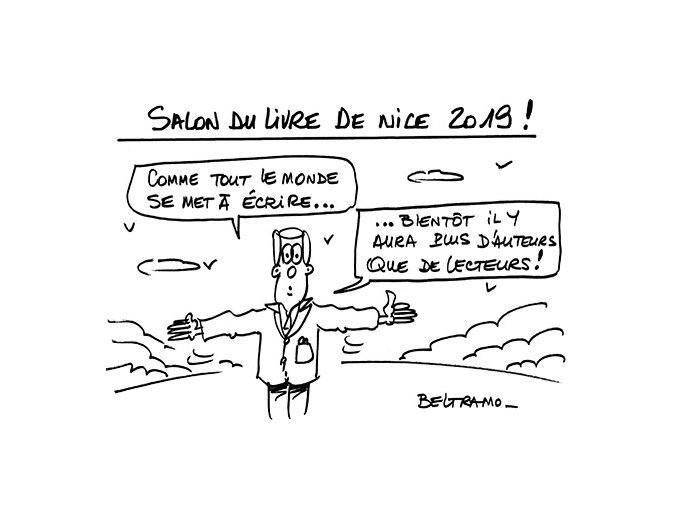 SALON DU LIVRE DE NICE 2019 !
COMME TOUT LE MONDE
SE MET À ÉCRIRE...
...BIENTÔT IL Y
AURA PLUS D'AUTEURS
QUE DE LECTEURS !
BELTRAMO_